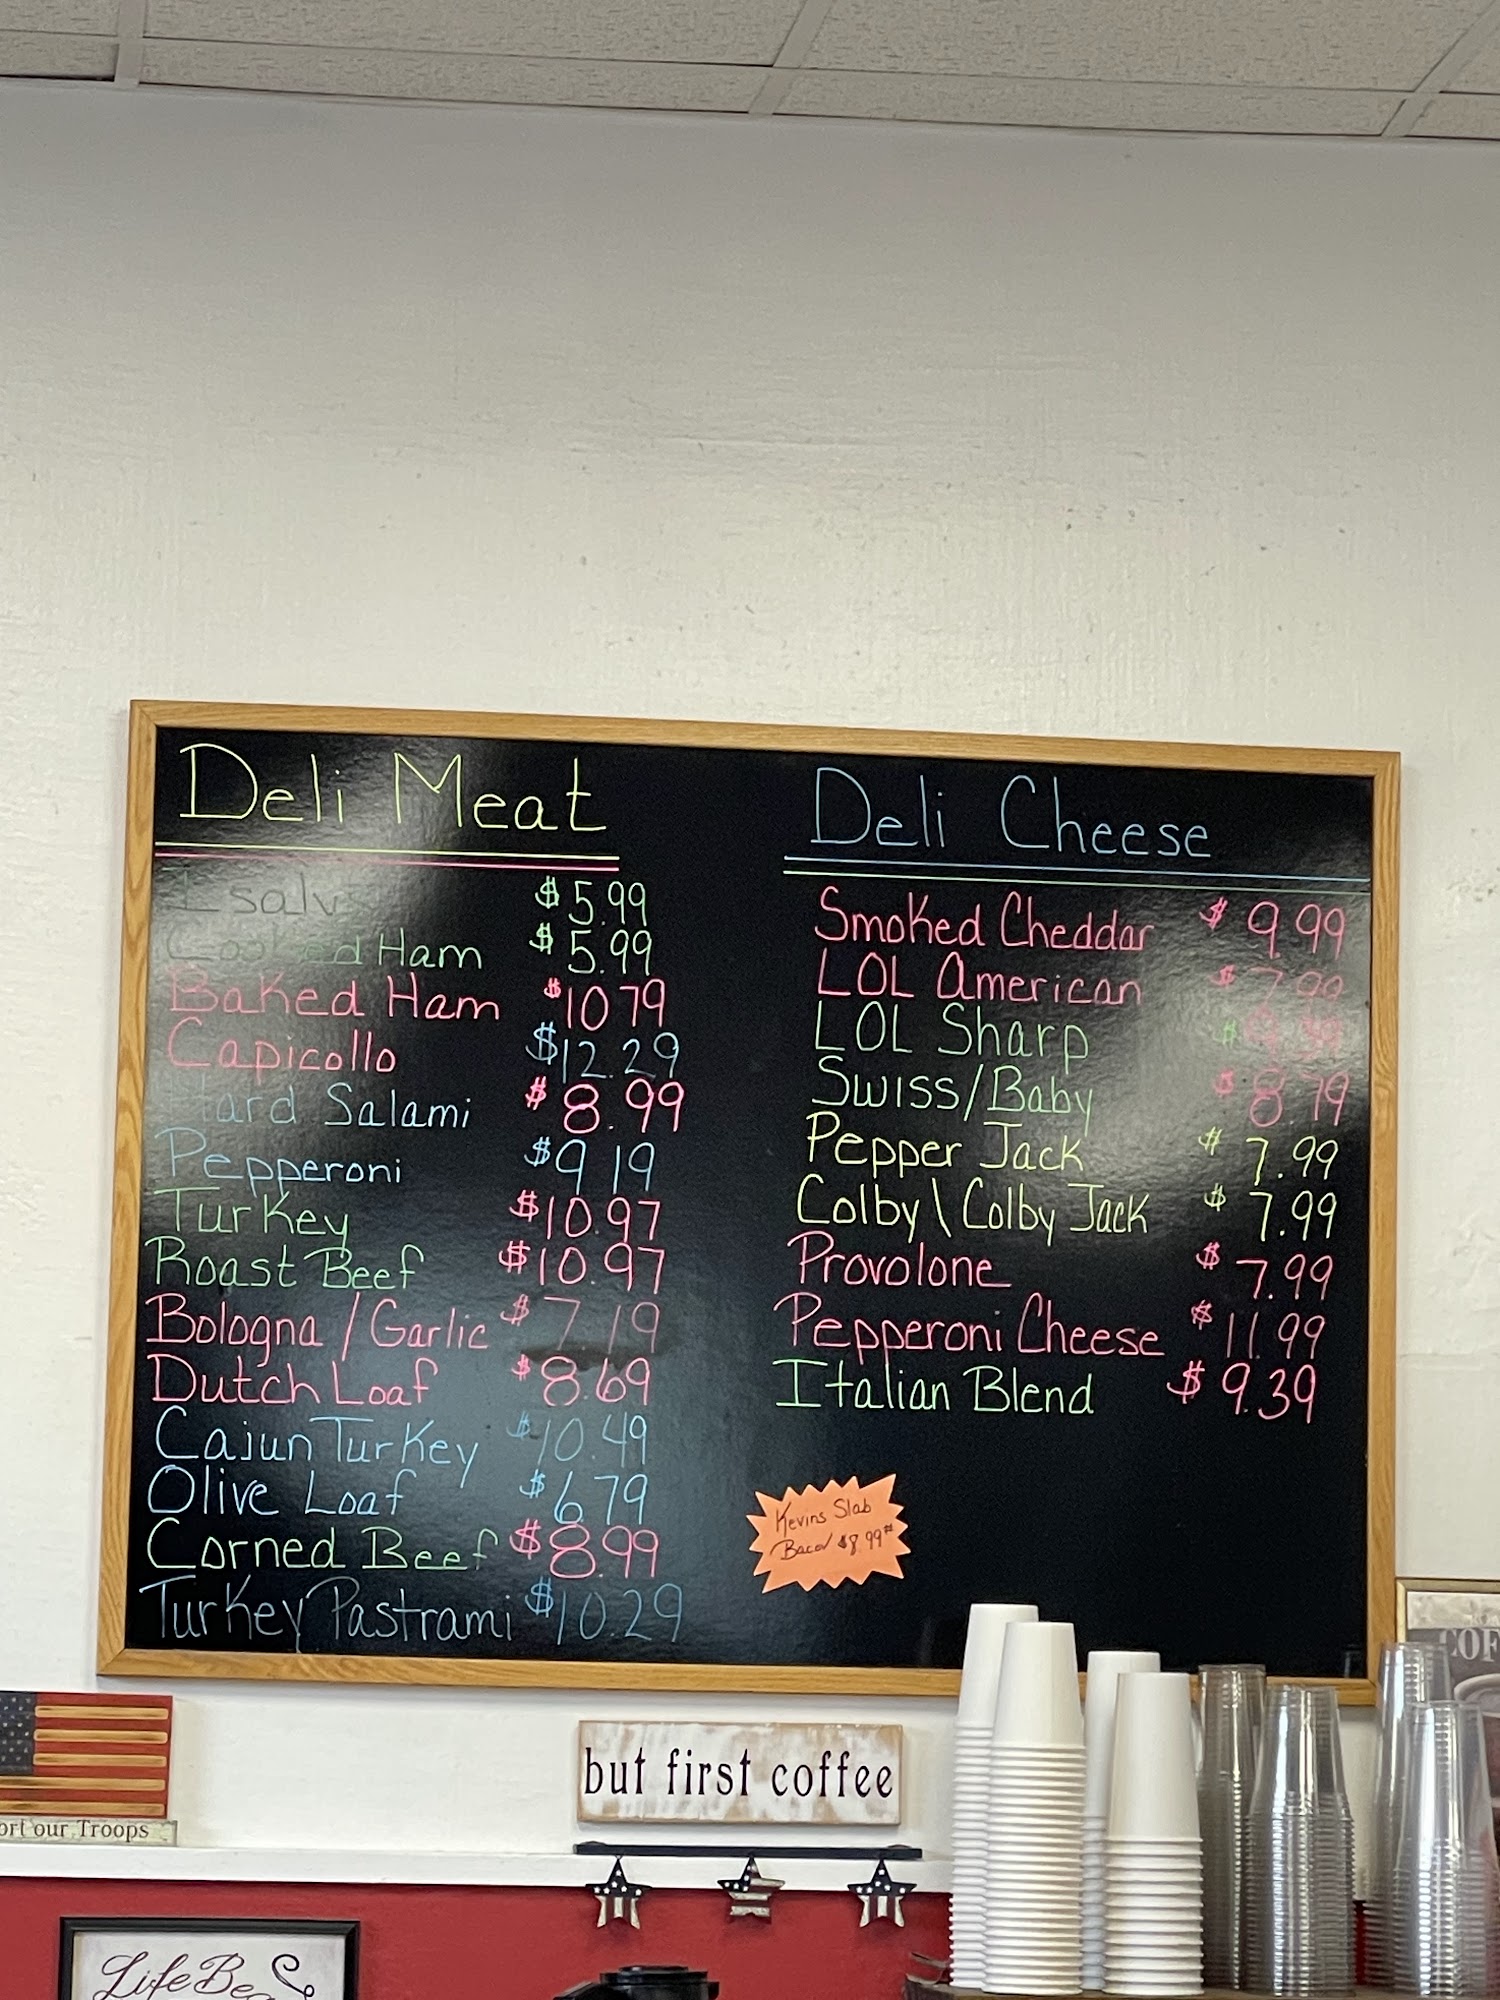 Deli Meat
Isaly $5.99
Cooked Ham $5.99
Baked Ham $10.79
Capicollo $12.29
Hard Salami $8.99
Pepperoni $9.19
Turkey $10.97
Roast Beef $10.97
Bologna/Garlic $7.19
Dutch Loaf $8.69
Cajun Turkey $10.49
Olive Loaf $6.79
Corned Beef $8.99
Turkey Pastrami $10.29
Deli Cheese
Smoked Cheddar $9.99
LOL American $7.99
LOL Sharp $9.39
Swiss/Baby $8.79
Pepper Jack $7.99
Colby\Colby Jack $7.99
Provolone $7.99
Pepperoni Cheese $11.99
Italian Blend $9.39
Kevins Slab
Bacon $8.99#
but first coffee
ort our Troops
COF